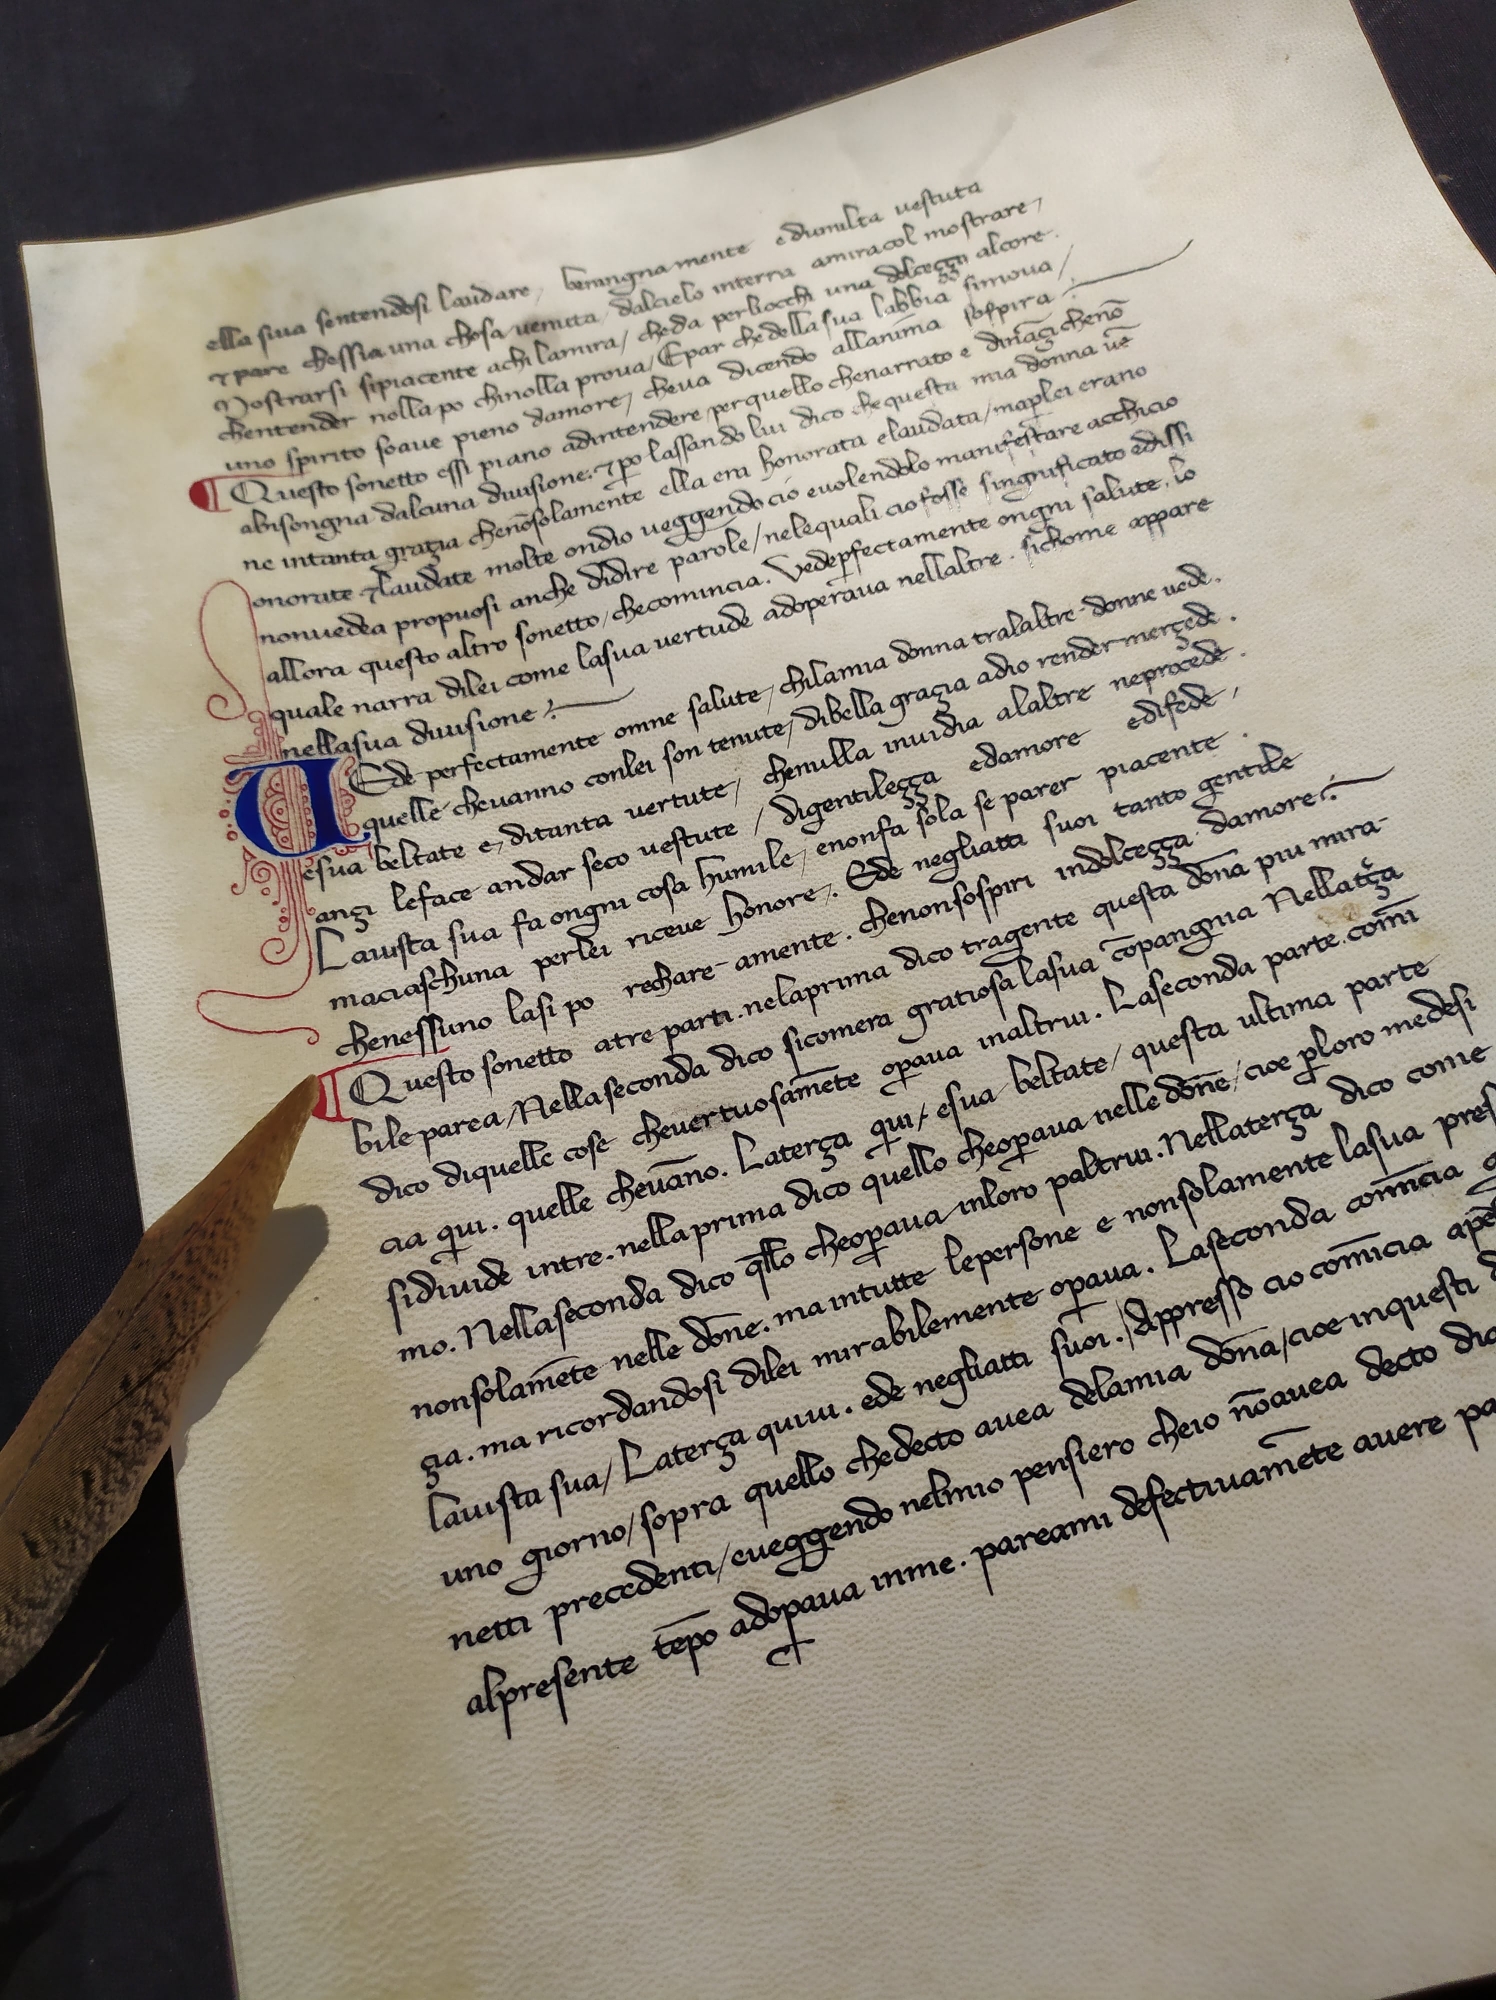 ella siua sentendosi laudare, benıngnamente edumilta vestuta
⁊ pare chossia una chosa venuta/ dalcielo interra amiracol mostrare,
Mostrarsi sipiacente achi lamira/ cheda perliocchi una dolceçça alcore.
chentender nolla po chinolla prova/ Epar chedella sua labbia simova/
uno spirito soave pieno damore, cheva dicendo allanima sospira
Questo sonetto essi piano adintendere perquello chenarrato e dinãçi chenõ
abisongna dalcuna divisione. ⁊ po lassando lui dico chequesta mia donna vẽ
ne intanta graçia chenõsolamente ella era honorata elaudata/ maplei erano
onorate ⁊laudate molte ondio veggendo cio evolendolo manifestare acchicio
nonvedea propuosi anche didire parole/ nelequali cio fosse singnificato edissi
allora questo altro sonetto/ checomincia. Vedeperfectamente ongni salute, lo
quale narra dilei come lasua vertude adoperava nellaltre. sichome appare
nellasua divisione
VEde perfectamente omne salute, chilamia donna tralaltre donne vede.
quelle chevanno conlei son tenute, dibella graçia adio render merçede.
esua beltate e, ditanta vertute, chenulla invidia alaltre neprocede.
ançi leface andar seco vestute / digentileçça edamore edifede,
Lavista sua fa ongni cosa humile, enonfa sola se parer piacente.
maciaschuna perlei riceve honore,. Ede negliatti suoi tanto gentile
chenessuno lasi po rechare amente. chenonsospiri indolceçça damore
Questo sonetto atre parti. nelaprima dico tragente questa dõna piu mira-
bile parea/ Nellaseconda dico sicomera gratiosa lasua cõpangnia Nellatça
dico diquelle cose chevertuosamẽte opava inaltrui. Laseconda parte. comĩ
cia qui. quelle chevãno. Laterça qui/ esua beltate/ questa ultima parte
sidivide intre. nellaprima dico quello cheopava nelle dõne/ cioe ploro medesi
mo. Nellaseconda dico qllo cheopava inloro paltrui. Nellaterça dico come
nonsolamẽte nelle dõne. ma intutte lepersone e nonsolamente lasua pres
ça. ma ricordandosi dilei mirabilemente opava. Laseconda comĩcia
lavista sua/ Laterça quivi. ede negliatti suoi. Appresso cio comĩcia apẽ
uno giorno/ sopra quello chedecto avea delamia dõna/ cioe inquesti
netti precedenti/ eveggendo nelmio pensiero cheio nõavea decto
alpresente tẽpo adopava inme. pareami defectivamẽte avere pa